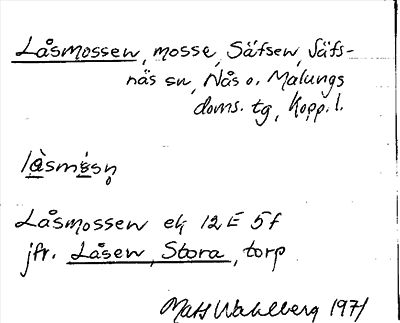 Låsmossen, mosse, Säfsen, Säfs-
näs sn, Nås o. Malungs
doms. tg, Kopp. l.
Låsmossen ek 12E 5f
jfr. Låsen, Stora, torp
Mats Wahlberg 1971